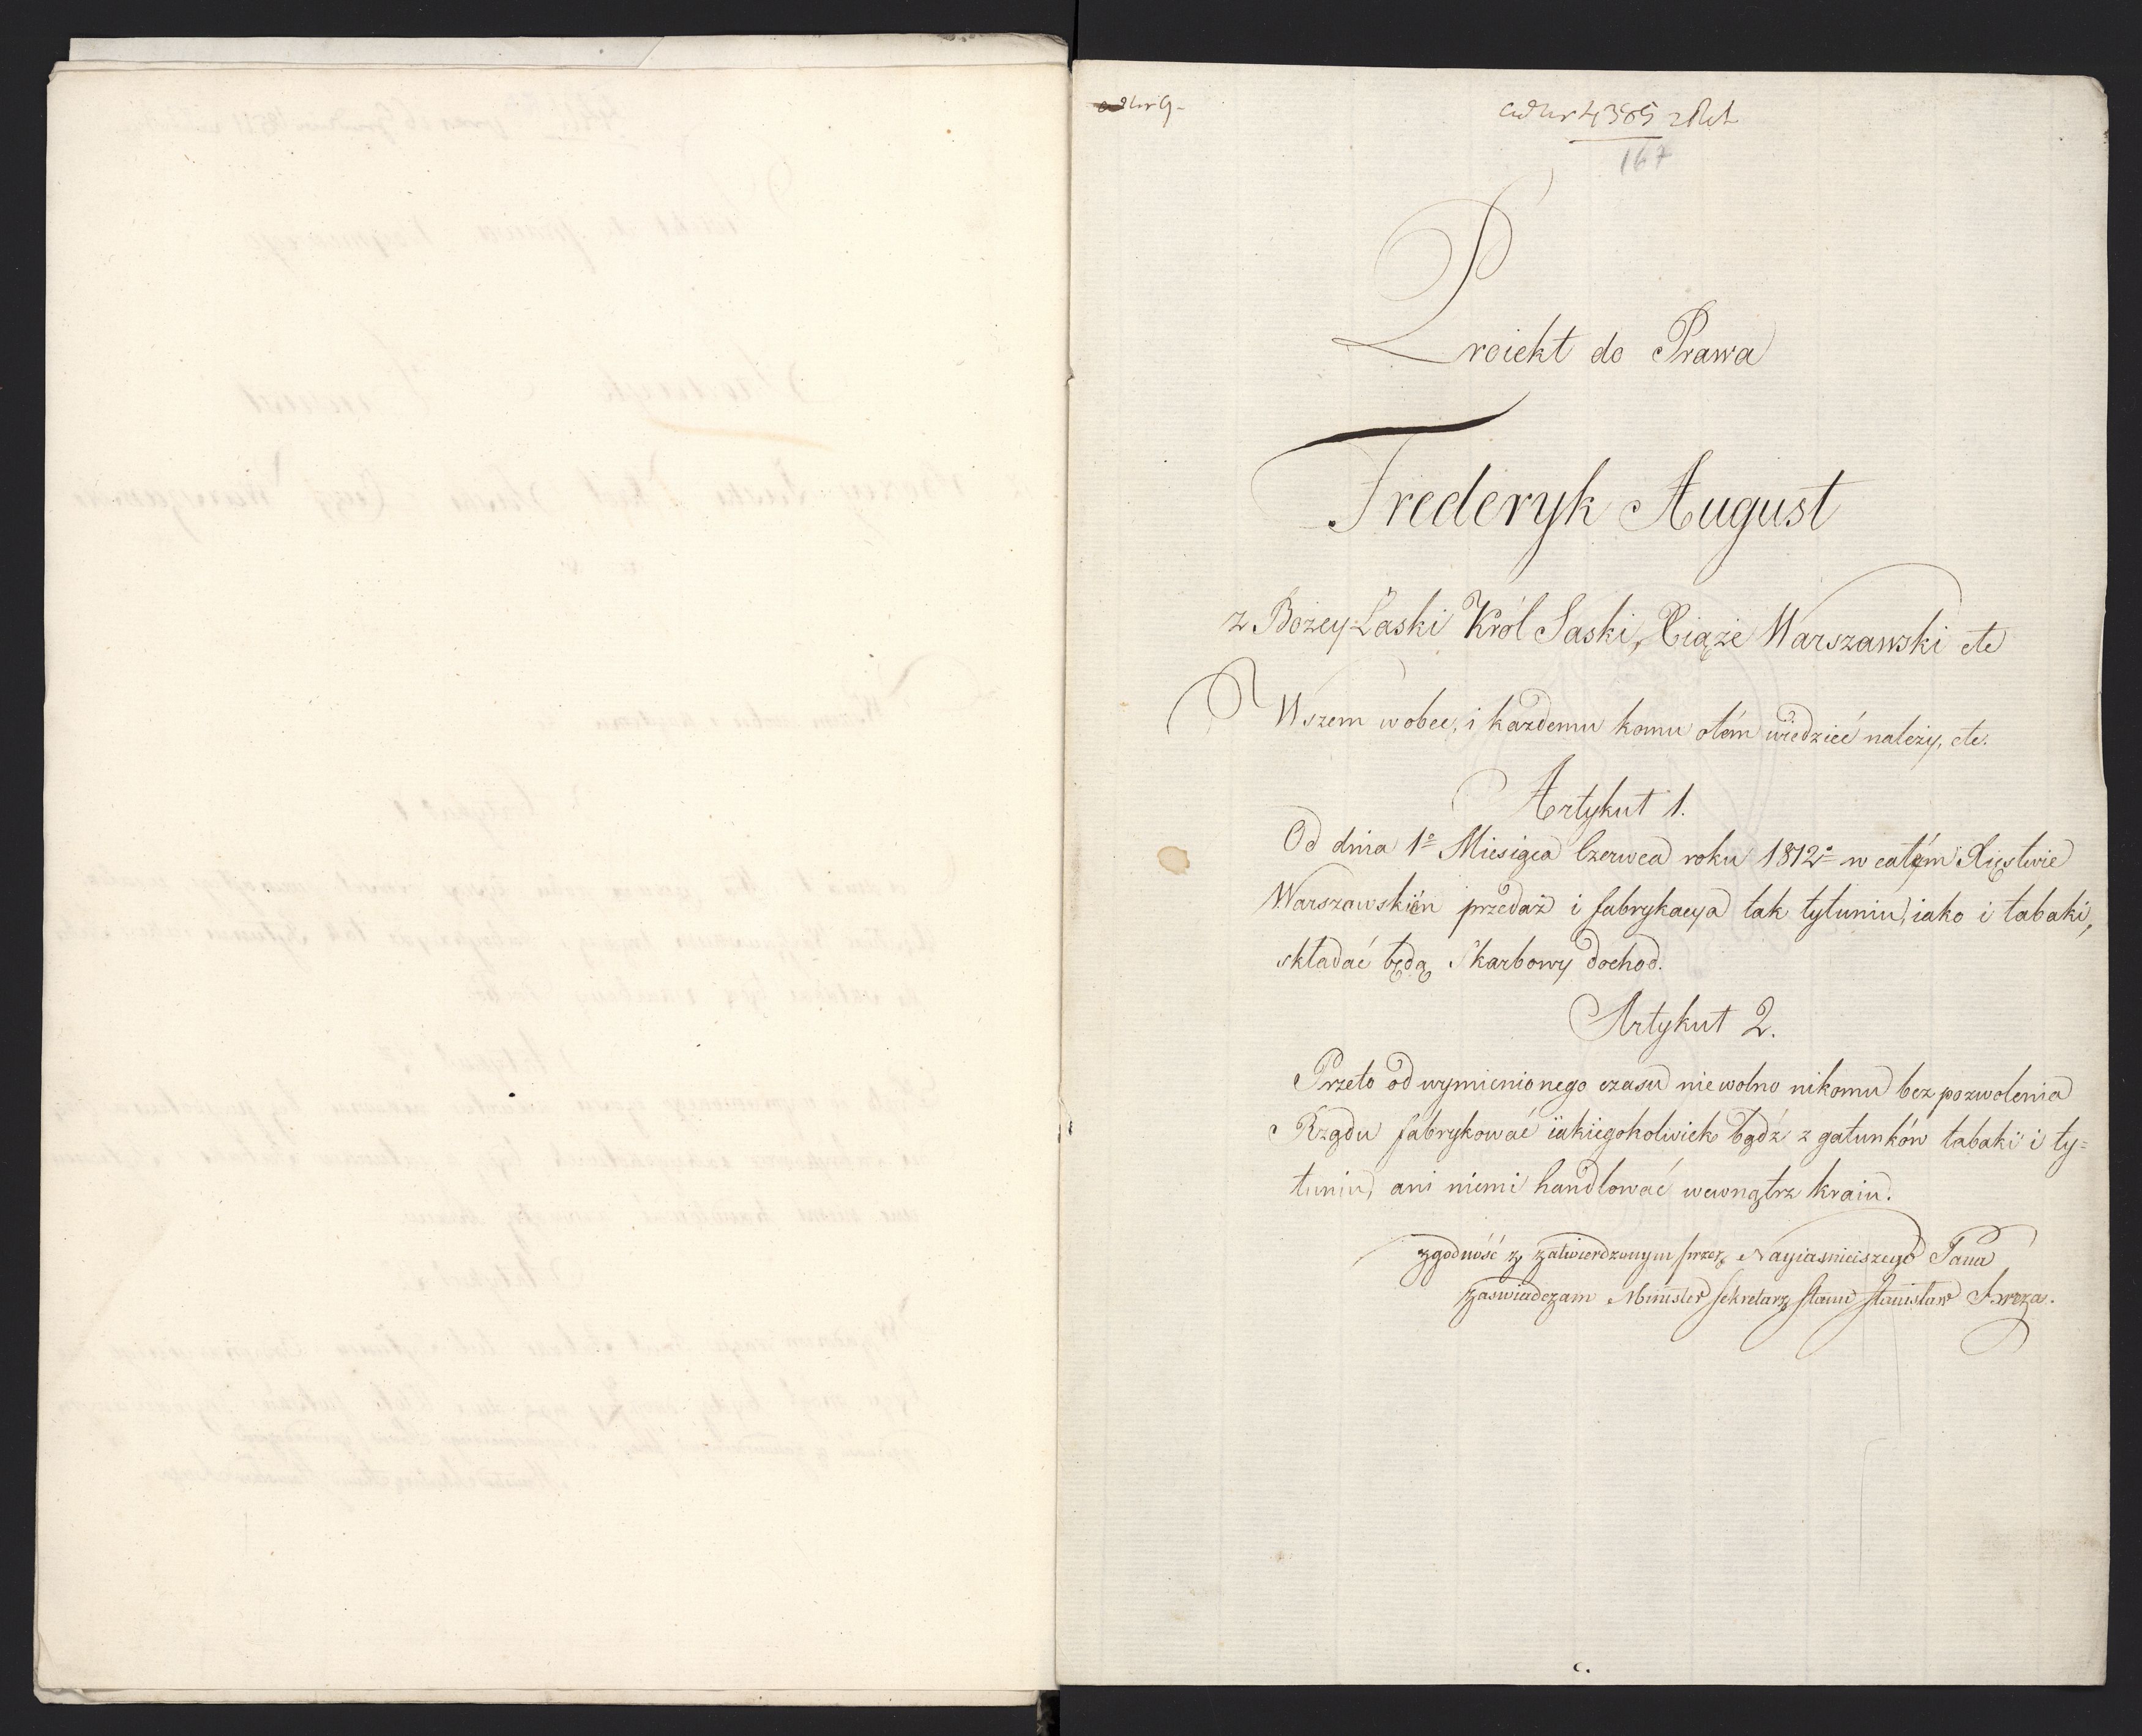 ad Nr 9.
ad Nr 4385
167
Proiekt do Prawa
Frederyk August
z Bożey Łaski Król Saski, Xiąże Warszawski etc
Wszem wobec, i każdemu komu otém wiedzieć należy, etc.
Artykuł 1.
Od dnia 1o Miesiąca Czerwca roku 1812o w całém Xięstwie
Warszawskiem przedaż i fabrykacya tak tytuniu, iako i tabaki,
składać będą Skarbowy dochod.
Artykuł 2.
Przeto od wymienionego czasu niewolno nikomu bez pozwolenia
Rządu fabrykować iakiegokolwiek bądź z gatunków tabaki i ty=
tuniu, ani niemi handlować wewnątrz kraiu.
zgodność z zatwierdzonym przez Nayiaśnieiszego Pana
zaświadczam Minister Sekretarz Stanu Stanisław Breza.